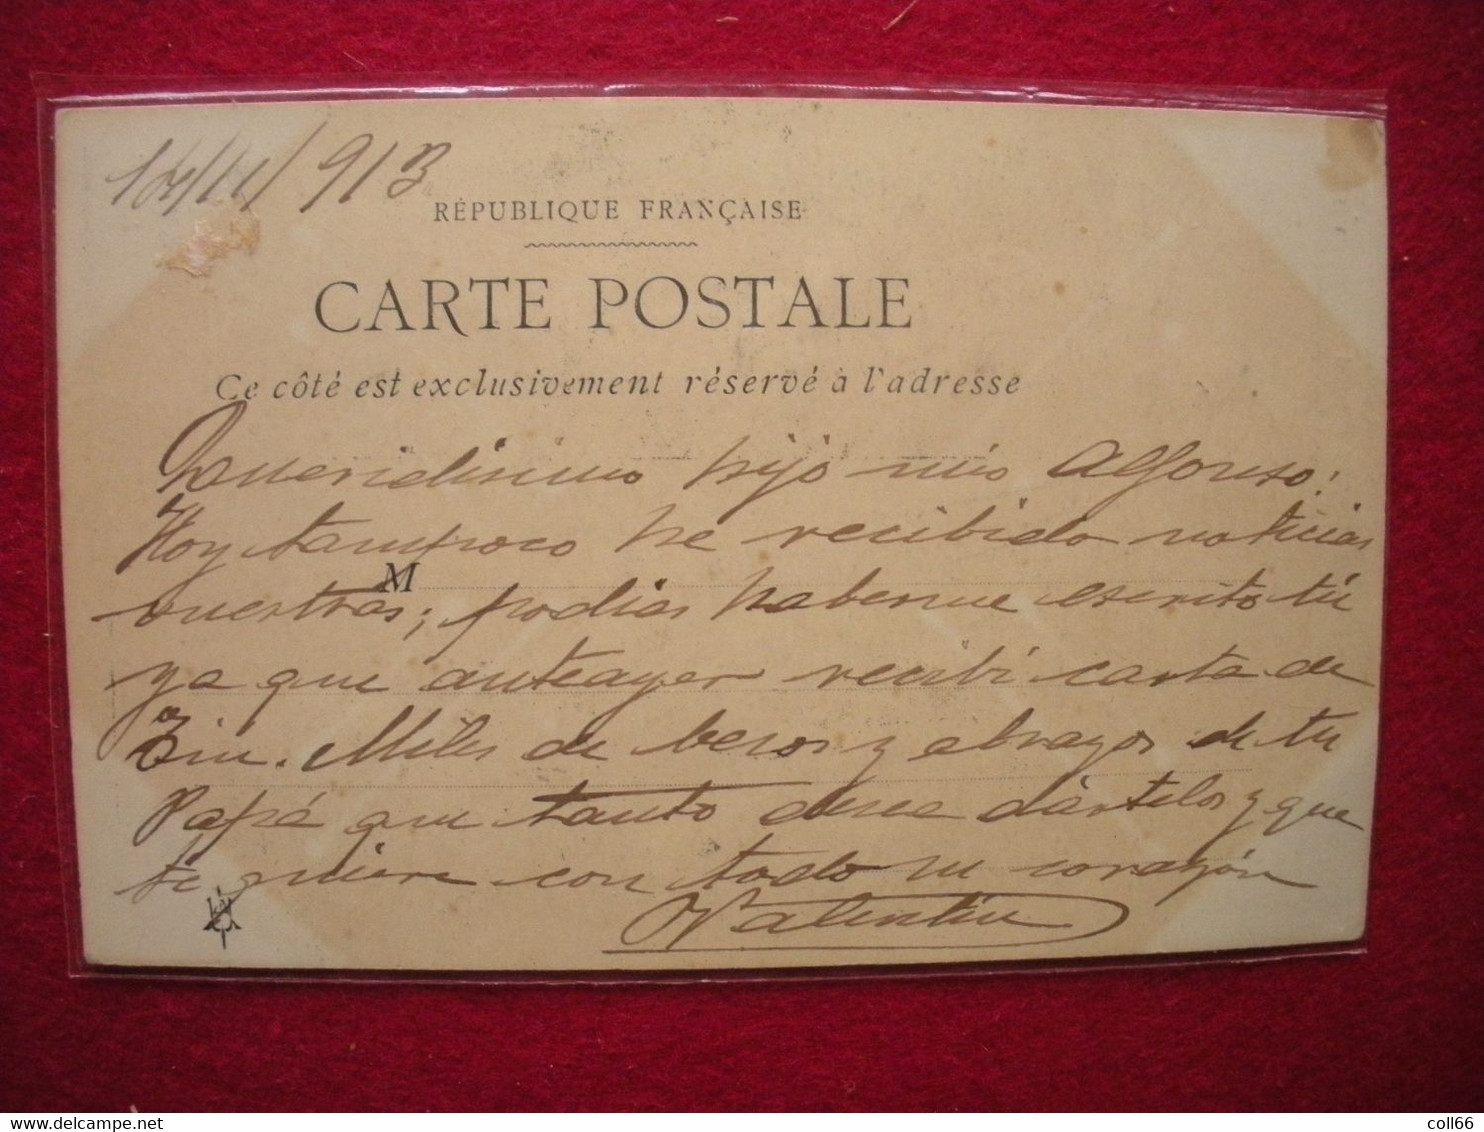 /11/913
RÉPUBLIQUE FRANÇAISE
CARTE POSTALE
Ce côté est exclusivement réservé à l'adresse
Queridisimo hijo mio Alfonso:
Hoy tampoco he recibido noticias
M
vuestras; podias haberme escrito tú
ya que anteayer recibi carta de
Miles de besos y abrazos de tu
Papá que tanto desea dártelos y que
te quiere con todo su corazón
Valentin
coll66